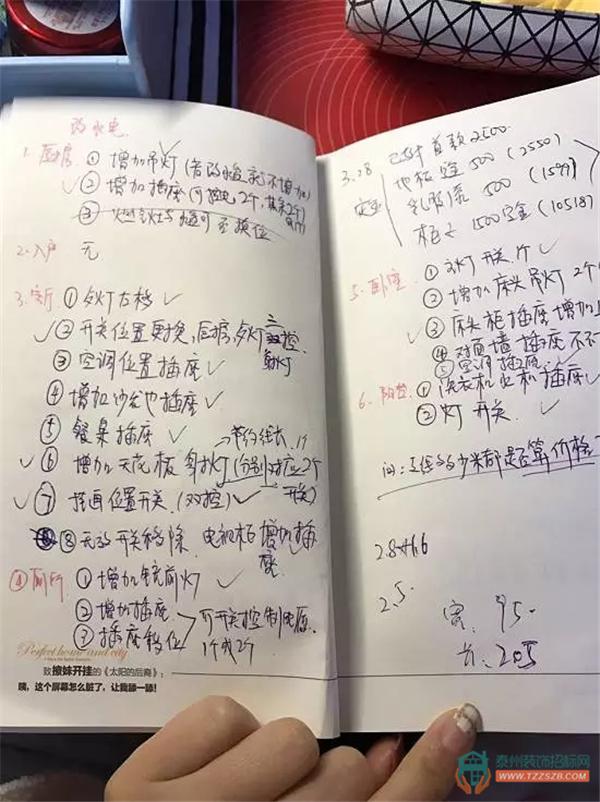 改水电
1. 厨房 ① 增加吊灯（若改水盆就不增加）
② 增加插座（可控电2个，其余2个）
③ 燃气灶与 至换位
2. 入户 无
3. 客厅 ① 射灯右移
② 开关位置更换，后摆，射灯三控
射灯
③ 空调位置插座
④ 增加沙发边插座
⑤ 餐桌插座
⑥ 增加天花板射灯（分别对应2个开关）
⑦ 挂画位置开关（双控）
⑧ 无效开关移除 电视柜增加插座
④ 厕所 ① 增加镜前灯
② 增加插座
③ 插座移位
可开关控制电源
1个或2个
Perfect home and city
致撩妹开挂的《太阳的后裔》：
咦，这个屏幕怎么脏了，让我舔一舔！
3.28 已付首款2500
定金 地板定500（2550）
乳胶漆 500（1599）
柜子1500定金（10518）
5. 卧室 ① 灯开关1个
② 增加床头吊灯2个
③ 床头柜插座增加
④ 对面墙插座不
⑤ 空调插座
6. 阳台 ① 洗衣机业机插座
② 灯开关
问：
多少米都是否算价格
2.8
2.5
宽：95
长：205
泰州装饰招标网
WWW.TZZSZB.COM